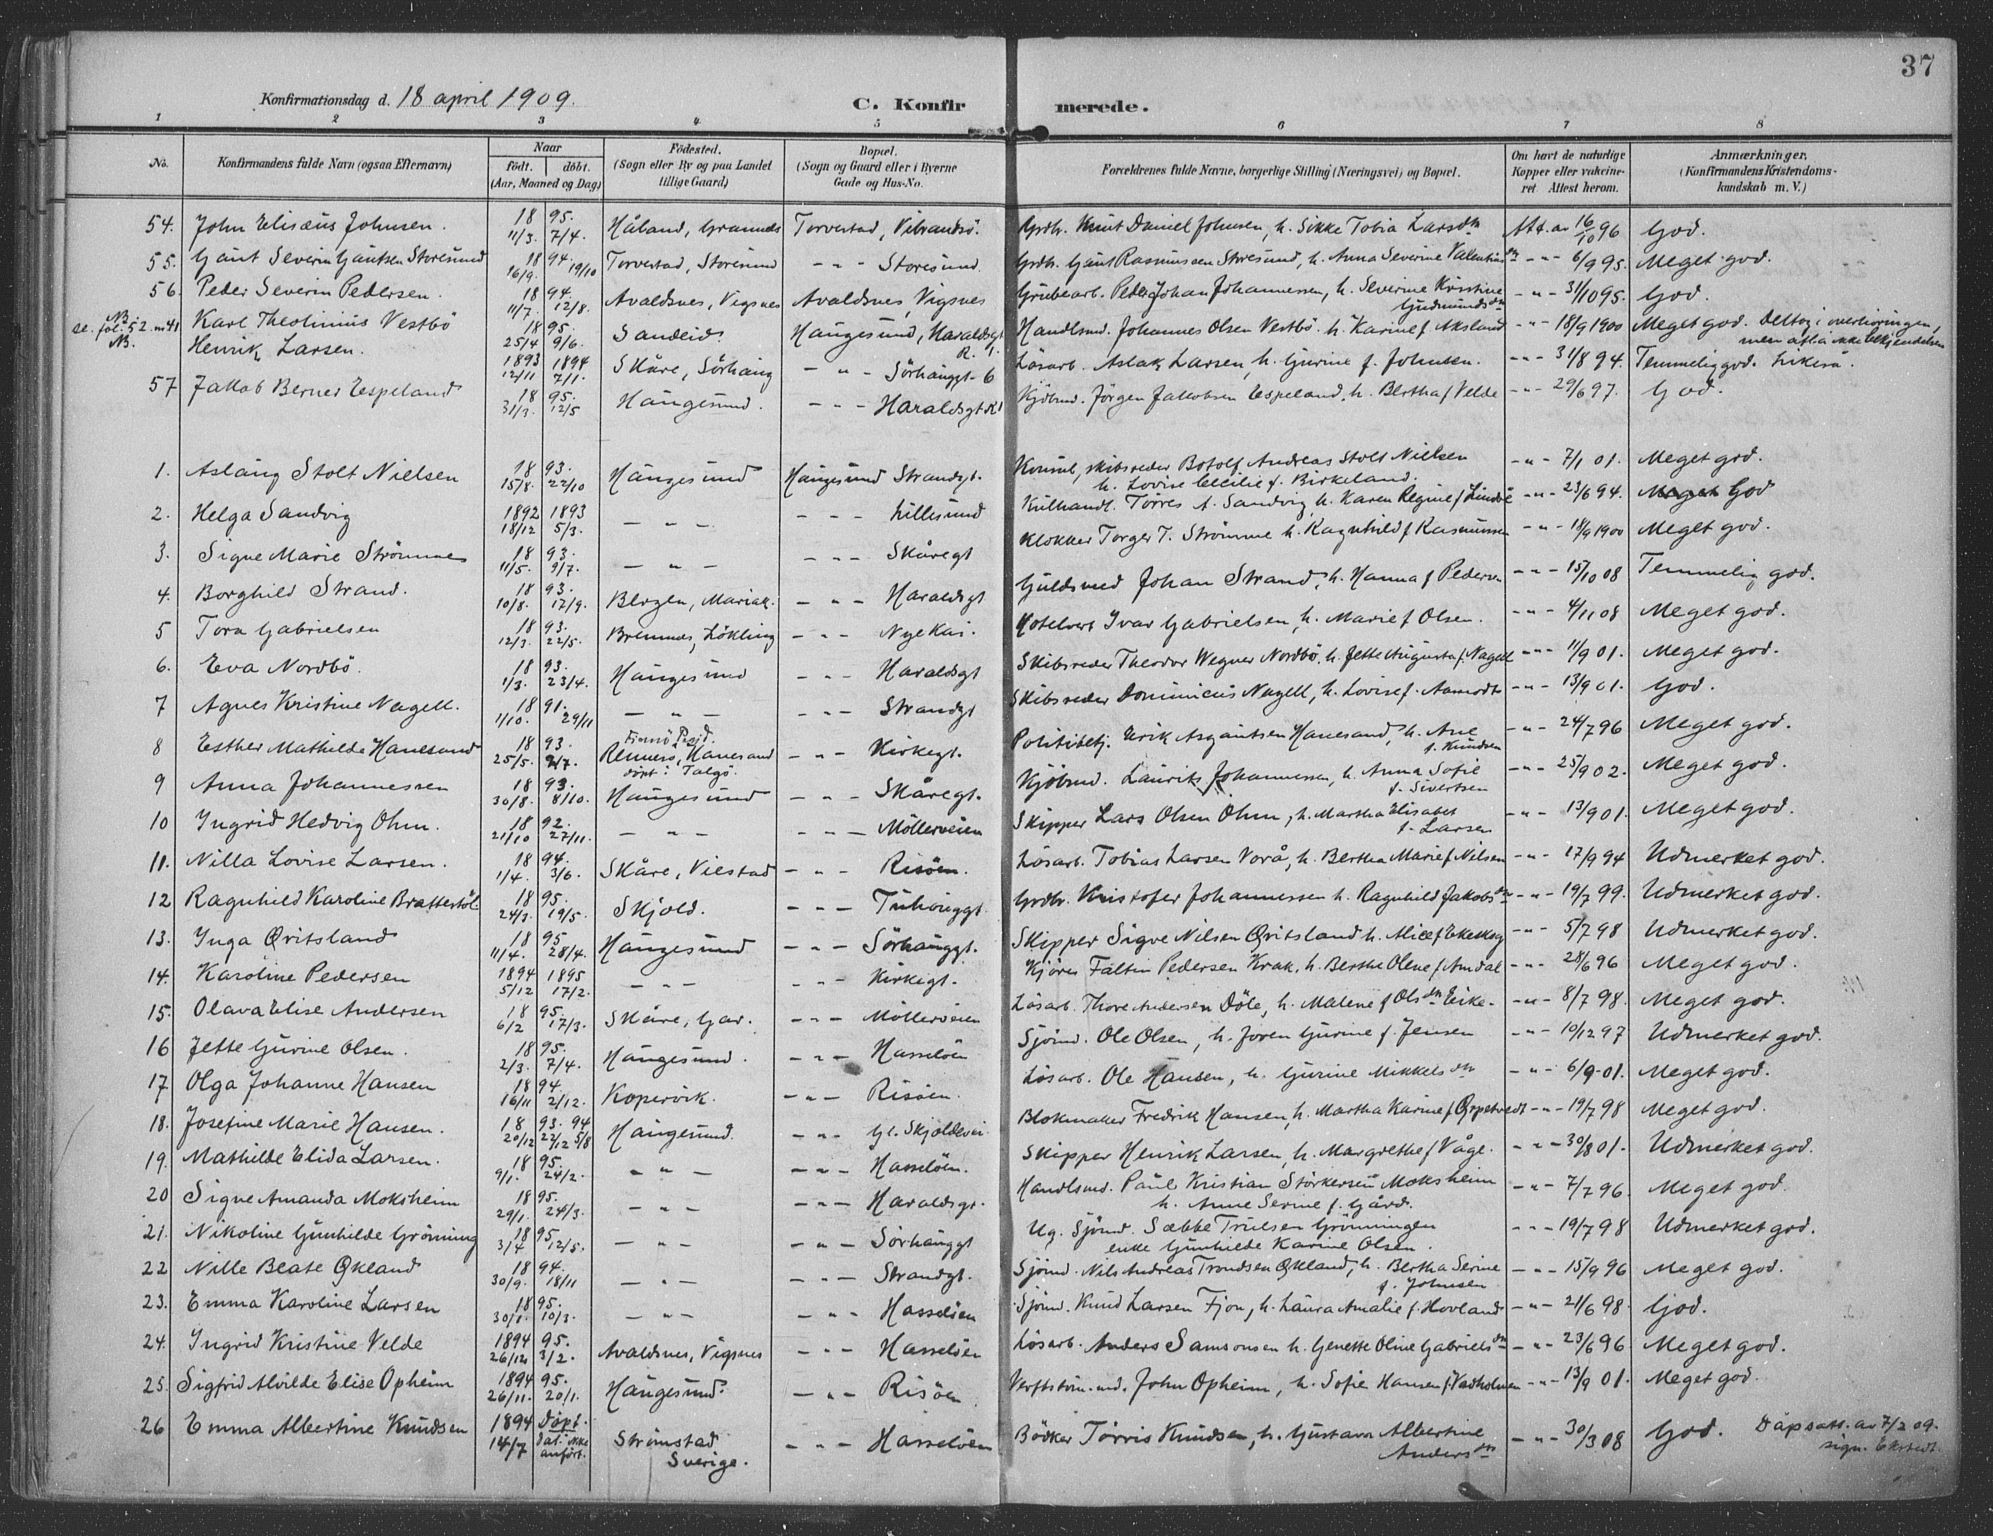 37
Konfirmationsdag d. 18 april 1909.
C. Konfirmerede.
1 2 3 4 5 6 7 8
No.
Konfirmandens fulde Navn (ogsaa Efternavn)
Naar
født. døbt.
(Aar, Maaned og Dag)
Fødested.
(Sogn eller By og paa Landet tillige Gaard)
Bopæl.
(Sogn og Gaard eller i Byerne Gade og Hus-No.
Forældrenes fulde Navne, borgerlige Stilling (Næringsvei) og Bopæl.
Om havt de naturlige Kopper eller vakcineret Attest herom.
Anmærkninger.
(Konfirmandens Kristendomskundskab m. V.)
54. John Elisæus Johnsen. 1895. 11/3. 7/4. Håland, Torvestad, Vibrandsö. Grdb. Knut Daniel Johnsen, h. Sikke Tobia Larsdtr Att. av 16/10 96 God.
55. Gaut Severin Gautsen Storesund 1894. 16/9. 19/10 Torvestad, Storesund - " - Storesund. Grdb. Gaut Rasmussen Storesund, h. Anna Severine Valentinsdtr - " - 6/9 95. Meget god.
56. Peder Severin Pedersen. 1894. 11/7. 12/8. Avaldsnes, Vigsnes Avaldsnes, Vigsnes Grubearb. Peder Johan Johannessen, h. Severine Kristine Gudmundsdtr - " - 31/10 95. God.
NB. se fol. 52. n 41 NB. Karl Theolinius Vestbö 1895. 25/4 9/6. Sandeid. Haugesund, Haraldsgt Handlsmd. Johannes Olsen Vestbö. h. Karine f. Aksland - " - 18/9 1900 Meget god. Deltog i overhöringen, men avla ikke bekjendelsen
Henrik Larsen. 1893 1894 12/11 7/1. Skåre, Sörhaug - " - Sörhauggt. 6 Lösarb. Aslak Larsen, h. Gurine f. Johnsen. - " - 31/8 94. Temmelig god. Likeså.
57 Jakob Berner Espeland 1895. 31/3. 12/5 Haugesund. - " - Haraldsgt Kjöbmd. Jörgen Jakobsen Espeland, h. Bertha f Velde - " - 29/6 97. God.
1. Aslaug Stolt Nielsen 1893. 15/8. 22/10 Haugesund Haugesund Strandgt. Konsul, skibsreder Botolf Andreas Stolt Nielsen h. Lovise Cecilie f. Birkeland. - " - 7/1 01. Meget god.
2. Helga Sandvig 1892 1893 18/12 5/3. - " - - " - Lillesund Kulhandl. Törres A. Sandvig, h. Karen Regine f - " - 23/6 94. Meget God
3. Signe Marie Strömme 1893. 11/5. 9/7. - " - - " - Skåregt Klokker Torger T. Strömme h. Ragnhild f Rasmussen - " - 18/9 1900 Meget god.
4. Borghild Strand. 1893. 10/8. 17/9. Bergen, Mariak. - " - Haraldsgt Guldsmed Johan Strand, h. Hanna f Pedersen - " - 15/10 08 Temmelig god.
5 Tora Gabrielsen 1893. 12/3. 22/5. Bremnes, Lökling - " - Nye Kai. Hotelvert Ivar Gabrielsen, h. Marie f Olsen. - " - 4/11 08 Meget god.
6. Eva Nordbö. 1893. 1/3. 23/4. Haugesund - " - Haraldsgt Skibsreder Theodor Wegner Nordbö, h. Jette Augusta f. Nagell - " - 11/9 01. Meget god.
7 Agnes Kristine Nagell. 1891. 1/10. 29/11 - " - - " - Strandgt Skibsreder Dominicus Nagell, h. Lovise f. Aamodt - " - 13/9 01. God.
8 Esther Mathilde Hanesand 1893. 25/5. 2/7. Finnö Prgjd. Rennesö, Hanesand döpt i Talgö. - " - Kirkegt. Politibetj. Erik Asgautsen Hanesand, h. Ane f. Knudsen - " - 24/7 96 Meget god.
9 Anna Johannessen 1893. 30/8. 8/10. Haugesund - " - Skåregt. Kjöbmd. Lauritz Johannessen, h. Anna Sofie f. Sivertsen - " - 25/9 02. Meget god.
10 Ingrid Hedvig Ohm. 1892. 21/10 27/11. - " - - " - Möllerveien Skipper Lars Olsen Ohm, h. Martha Elisabet f. Larsen - " - 13/9 01. Meget god.
11. Nilla Lovise Larsen. 1894. 1/4. 3/6. Skåre, Viestad - " - Risöen. Lösarb. Tobias Larsen Vorå, h. Bertha Marie f Nilsen - " - 17/9 94 Udmerket god.
12 Ragnhild Karoline Brattestöl 1895. 24/3. 19/5. Skjold. - " - Tuhauggt. Grdbr. Kristofer Johannessen h. Ragnhild Jakobsdtr - " - 19/7 99. Udmerket god.
13. Inga Qvitsland 1895 11/4. 28/4. Haugesund - " - Sörhauggt. Skipper Sigve Nilsen Qvitsland h. Alice f Ekeskog - " - 5/7 98 Udmerket god.
14. Karoline Pedersen 1894 1895 5/12 17/2. - " - - " - Kirkegt. Kjörer Faltin Pedersen Krak, h. Berthe Oline f Amdal - " - 28/6 96 Meget god.
15. Olava Elise Andersen 1895. 6/2 17/3. Skåre, Gar. - " - Möllerveien Lösarb. Thore Andersen Döle, h. Malene f Olsdtr Eike. - " - 8/7 98. Meget god.
16 Jette Gurine Olsen. 1895. 2/3. 7/4. Haugesund. - " - Hasselöen Sjömd. Ole Olsen, h. Joren Gurine f. Jensen - " - 10/12 97 Udmerket god.
17 Olga Johanne Hansen 1894. 16/11 2/12. Kopervik. - " - Risöen. Lösarb. Ole Hansen, h. Gurine Mikkelsdtr - " - 6/9 01. Meget god.
18. Josefine Marie Hansen. 1893. 94 20/12 27/12 5/8 Haugesund. - " - Gl. Skjoldevei. Blokmaker Fredrik Hansen, h. Martha Karine f Qrpetvedt - " - 19/7 98 Meget god.
19. Mathilde Elida Larsen. 1895. 9/1. 24/2. - " - - " - Hasselöen. Skipper Henrik Larsen, h. Margrethe f Våge. - " - 30/8 01. Udmerket god.
20 Signe Amanda Moksheim 1895. 29/1. 24/3. - " - - " - Haraldsgt. Handlsmd. Paul Kristian Störkersen Moksheim h. Anne Serine f. Gård. - " - 7/7 96. Meget god.
21. Nikoline Gunhilde Gröning 1895. 3/4 12/5. - " - - " - Sörhauggt Ug. Sjömd. Sæbbe Trulsen Grönningen enke Gunhilde Karine Olsen. - " - 19/7 98 Udmerket god.
22 Nille Beate Økland 1894. 30/9. 18/11 - " - - " - Strandgt. Sjömd. Nils Andreas Trondsen Økland, h. Bertha Serine f. Johnsen - " - 15/9 96 Meget god.
23. Emma Karoline Larsen 1895. 30/1. 10/3. - " - - " - Hasselöen Sjömd. Knud Larsen Fjon, h. Laura Amalie f. Hovland - " - 21/6 98. God.
24. Ingrid Kristine Velde 1894 95. 26/12 3/2. Avaldsnes, Vigsnes - " - Hasselöen Lösarb. Anders Samsonsen h. Genette Oline Gabrielsdtr - " - 23/6 96 Meget god.
25. Sigfrid Alvilde Elise Opheim 1894 95. 26/11. 20/1. Haugesund. - " - Risöen Verftstöm.md. John Opheim, h. Sofie Hansen f. Vadholmen - " - 13/9 01. Meget god.
26 Emma Albertine Knudsen 1894 14/7 Döpt. dat. ikke anfört. Strömstad Sverige. - " - Hasselöen Bödker Törris Knudsen, h. Gustava Albertine Andersdtr - " - 30/3 08 God. Dåpsatt. av 7/2 09. sign. Ekstedt.